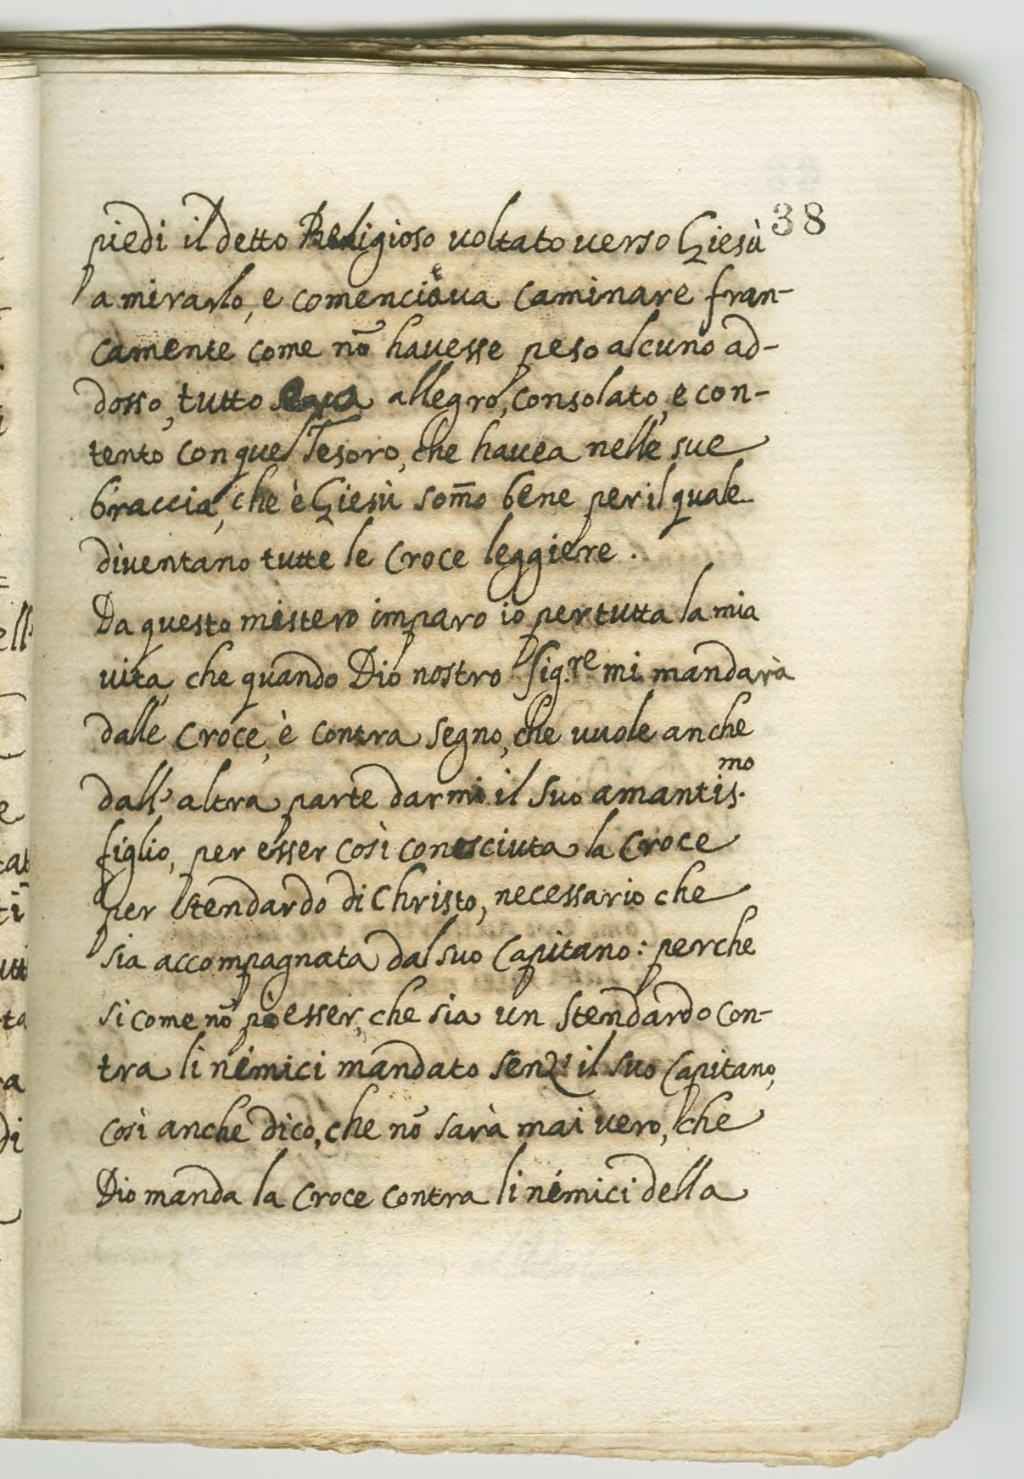 38
piedi il detto Religioso voltato verso Giesù
a mirarlo, e comenciava caminare fran-
camente come nõ havesse peso alcuno ad-
dosso, tutto allegro, consolato, e con-
tento con quel Tesoro, che havea nelle sue
braccia, che è Giesù som̃o bene per il quale
diventano tutte le Croce leggiere.
Da questo mistero imparo io per tutta la mia
vita, che quando Dio nostro Sig.re mi mandarà
dalle Croce, è contra segno, che vuole anche
dall'altra parte darmi il suo amantis.mo
figlio, per esser così conosciuta la Croce
per stendardo di Christo, necessario che
sia accompagnata dal suo Capitano: perche
si come nõ pò esser, che sia un stendardo con-
tra li nemici mandato senz'il suo Capitano,
così anche dico, che nõ sarà mai vero, che
Dio manda la Croce contra li nemici della